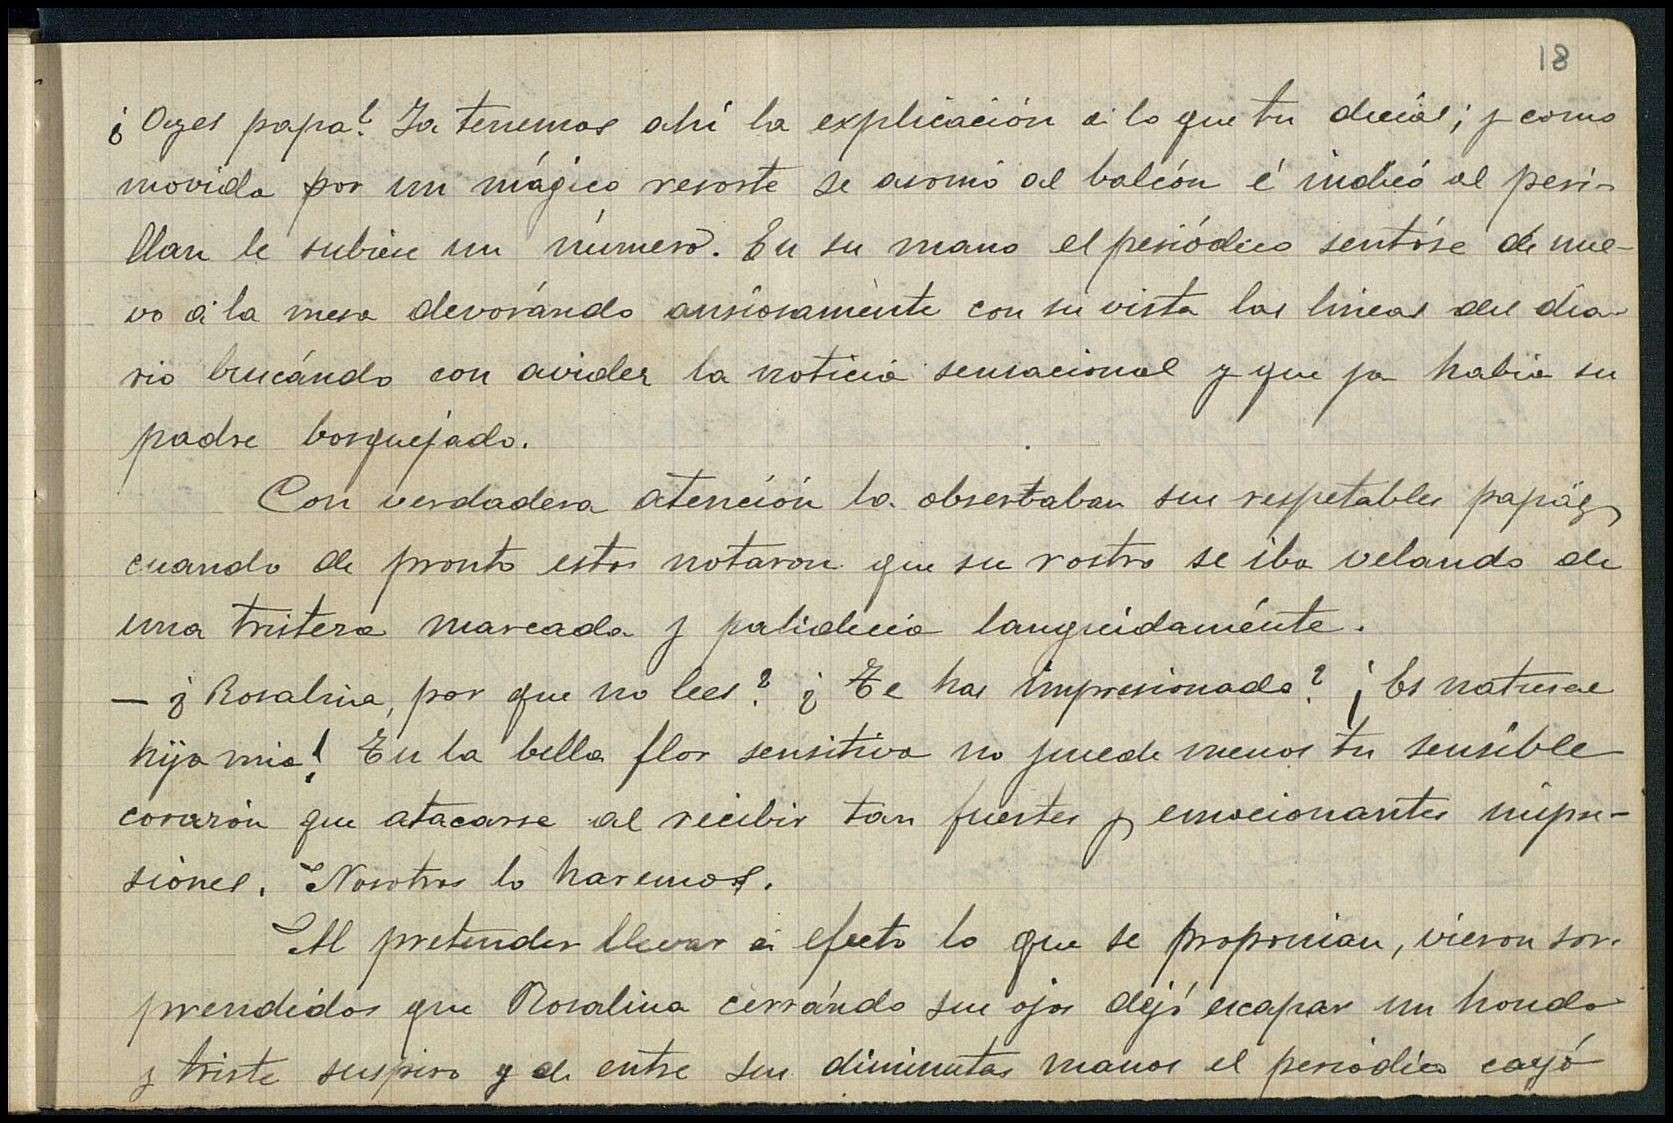 18
¿Oyes papa? Ya tenemos ahí la explicación á lo que tu decías; y como
movida por un mágico resorte se asomó al balcón é indicó al peri-
llan le subiese un número. En su mano el periódico sentóse de nue-
vo á la mesa devorándo ansiosamente con su vista las lineas del dia-
rio bucándo con avidez la noticia sensacional y que ya habia su
padre bosquejado.
Con verdadera atención la observaban sus respetables papás,
cuando de pronto estos notaron que su rostro se iba velando de
una tristeza marcada y palidecia languidaménte.
— ¿Rosalina, por que no lees? ¿Te has impresionado? ¡Es natural
hija mia! En la bella flor sensitiva no puede menos tu sensible
corazón que atacarse al recibir tan fuertes y emocionantes impre-
siones. Nosotros lo haremos.
Al pretender llevar á efecto lo que se proponian, vieron sor-
prendidos que Rosalina cerrándo sus ojos dejó escapar un hondo
y triste suspiro y de entre sus diminutas manos el periódico cayó